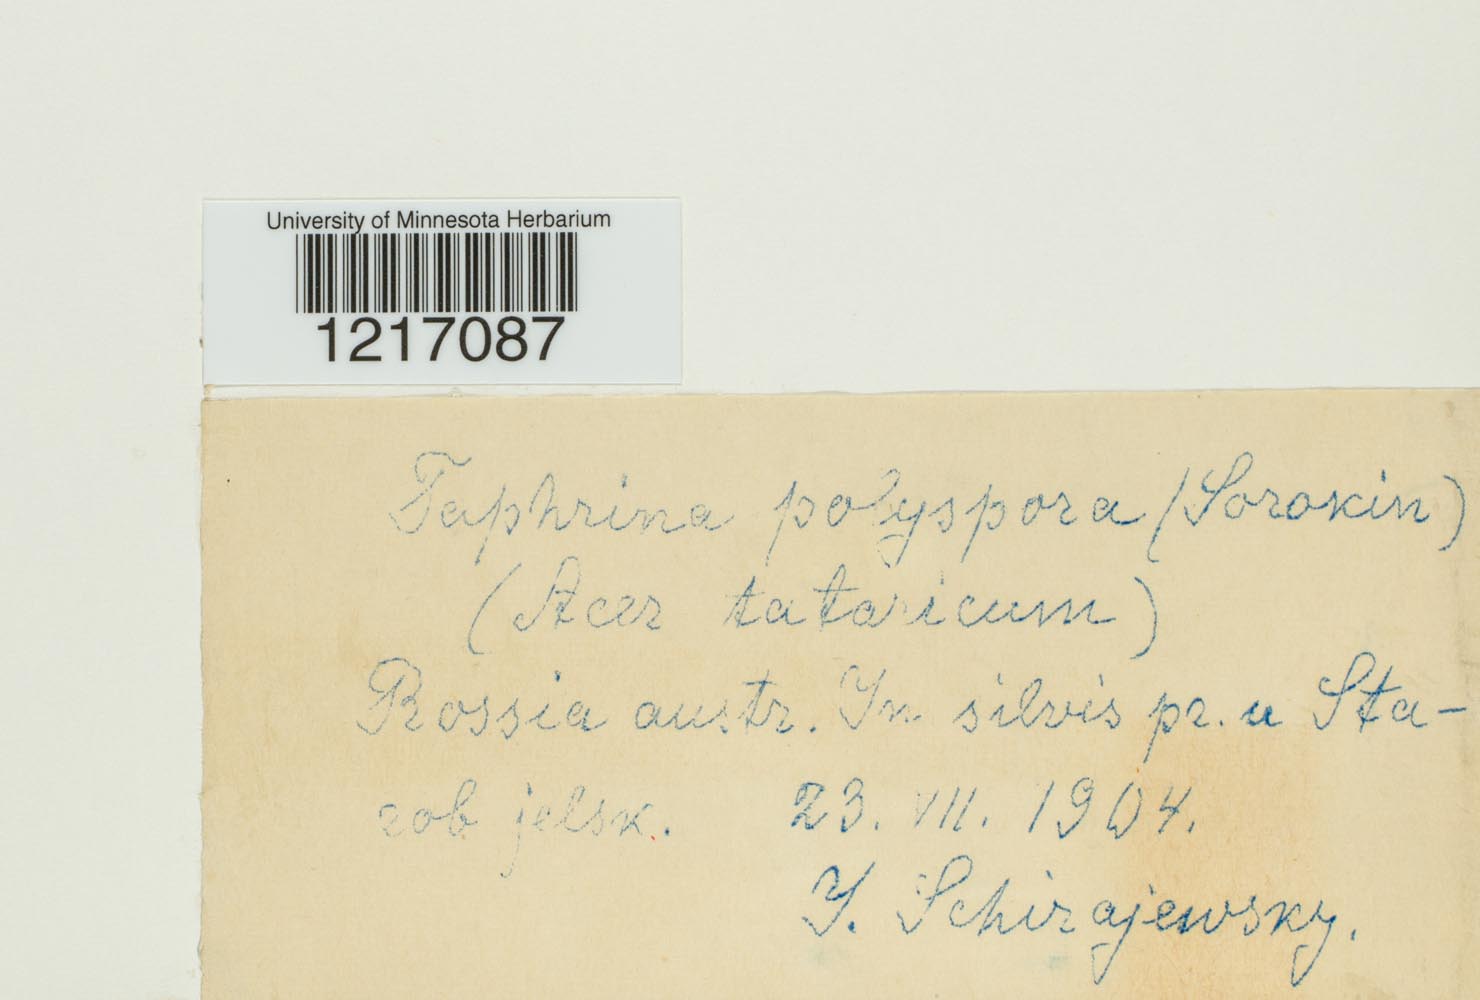 University of Minnesota Herbarium
1217087
Taphrina polyspora (Sorokin)
(Acer tataricum)
Rossia austr. In silvis pr. u Sta-
robjelsk. 23. VII. 1904.
J. Schirajewsky.